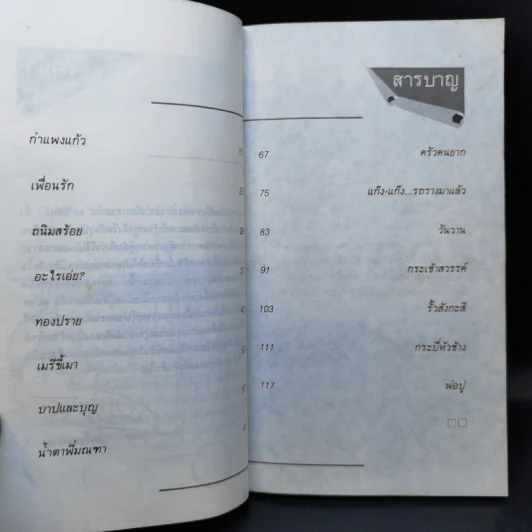 กำแพงแก้ว
เพื่อนรัก
ถนิมสร้อย
อะไรเอ่ย?
ทองปราย
เมรีขี้เมา
บาปและบุญ
น้ำตาพี่มณฑา
สารบาญ
67 ครัวคนยาก
75 แก๊ง-แก๊ง...รถรางมาแล้ว
83 วันวาน
91 กระเช้าสวรรค์
103 รั้วสังกะสี
111 กระบี่หัวช้าง
117 พ่อปู่